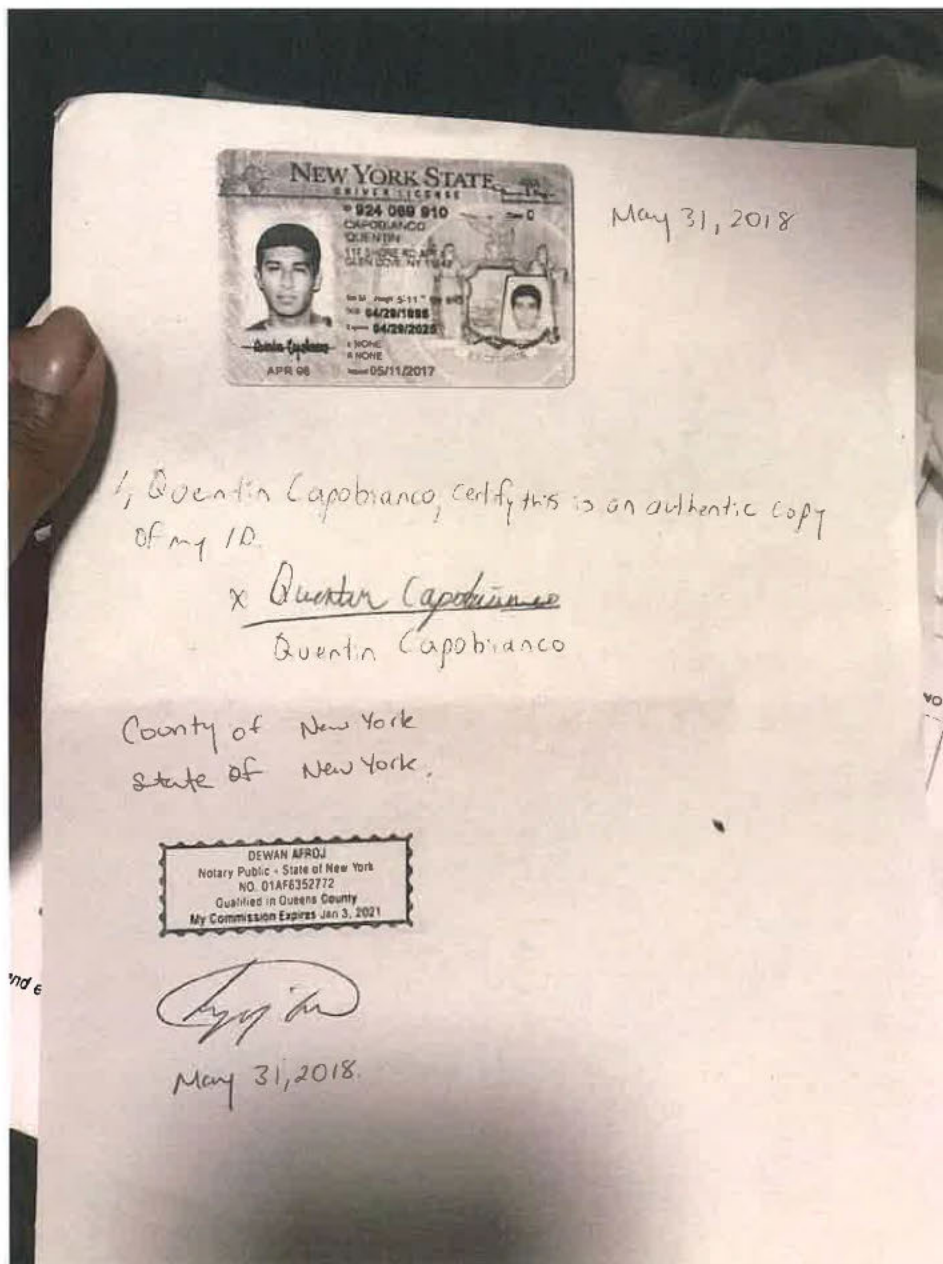 NEW YORK STATE
DRIVER LICENSE
924 069 910
CAPOBIANCO
QUENTIN
GLEN COVE, NY
5'-11"
04/29/2025
NONE
NONE
APR 96
05/11/2017
May 31, 2018
I, Quentin Capobianco, certify this is an authentic copy
of my ID.
x Quentin Capobianco
Quentin Capobianco
County of New York
State of New York.
DEWAN AFROJ
Notary Public - State of New York
NO. 01AF6352772
Qualified in Queens County
My Commission Expires Jan 3, 2021
May 31, 2018.
and e